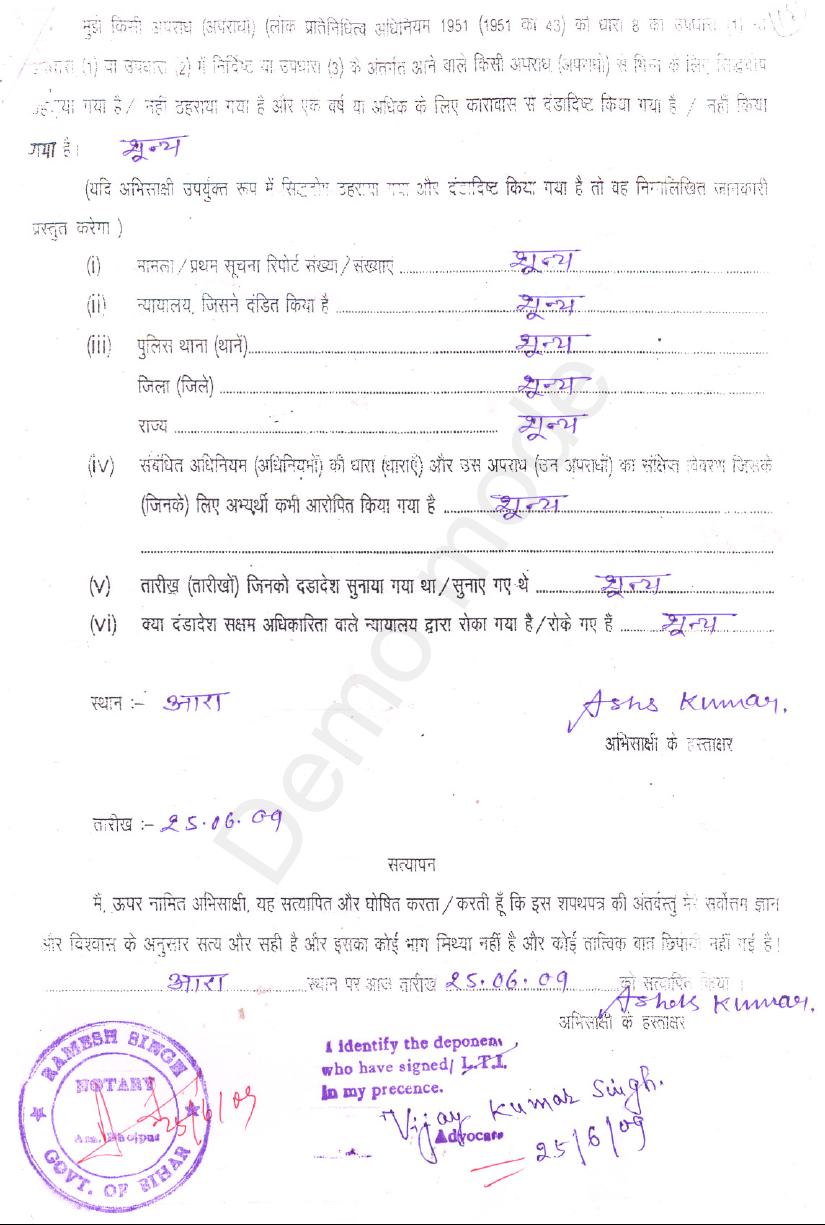 मुझे किसी अपराध (अपराधों) (लोक प्रातिनिधित्व अधिनियम 1951 (1951 का 43) की धारा 8 की उपधारा (1)
(1) या उपधारा (2) में निर्दिष्ट या उपधारा (3) के अंतर्गत आने वाले किसी अपराध (अपराधों) से भिन्न के लिए सिद्धदोष
ठहराया गया है / नहीं ठहराया गया है और एक वर्ष या अधिक के लिए कारावास से दंडादिष्ट किया गया है / नहीं किया
गया है। शून्य
(यदि अभिसाक्षी उपर्युक्त रूप में सिद्धदोष ठहराया गया और दंडादिष्ट किया गया है तो वह निम्नलिखित जानकारी
प्रस्तुत करेगा )
(i) मामला / प्रथम सूचना रिपोर्ट संख्या / संख्याएं शून्य
(ii) न्यायालय, जिसने दंडित किया है शून्य
(iii) पुलिस थाना (थानें) शून्य
जिला (जिले) शून्य
राज्य शून्य
(iv) संबंधित अधिनियम (अधिनियमों) की धारा (धाराएँ) और उस अपराध (उन अपराधों) का संक्षिप्त विवरण जिसके
(जिनके) लिए अभ्यर्थी कभी आरोपित किया गया है शून्य
(v) तारीख (तारीखों) जिनको दडादेश सुनाया गया था / सुनाए गए थे शून्य
(vi) क्या दंडादेश सक्षम अधिकारिता वाले न्यायालय द्वारा रोका गया है / रोके गए हैं शून्य
स्थान :- आरा
Kumar.
अभिसाक्षी के हस्ताक्षर
तारीख :- 25.06.09
सत्यापन
मैं, ऊपर नामित अभिसाक्षी, यह सत्यापित और घोषित करता / करती हूँ कि इस शपथपत्र की अंतर्वस्तु मेरे सर्वोत्तम ज्ञान
और विश्वास के अनुसार सत्य और सही है और इसका कोई भाग मिथ्या नहीं है और कोई तात्विक बात छिपायी नहीं गई है।
आरा स्थान पर आज तारीख 25.06.09 को सत्यापित किया ।
Kumar.
अभिसाक्षी के हस्ताक्षर
I identify the deponent
who have signed/ L.T.I.
In my precence.
Vijay Kumar Singh.
Advocate
25/6/09
RAMESH SINGH
NOTARY
Ara, Bhojpur
GOVT. OF BIHAR
25/6/09
Demo mode